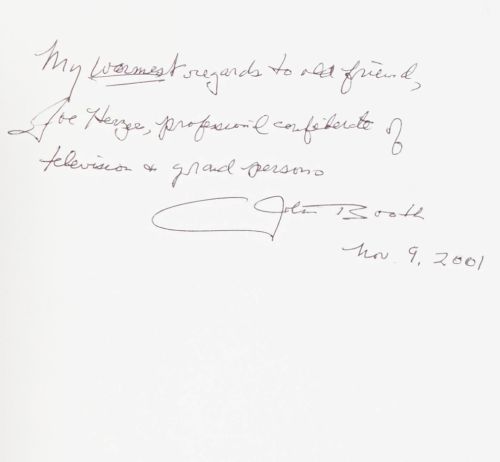 My warmest regards to old friend,
Joe, professional confederate of
television & grand person.
John Booth
Nov. 9, 2001